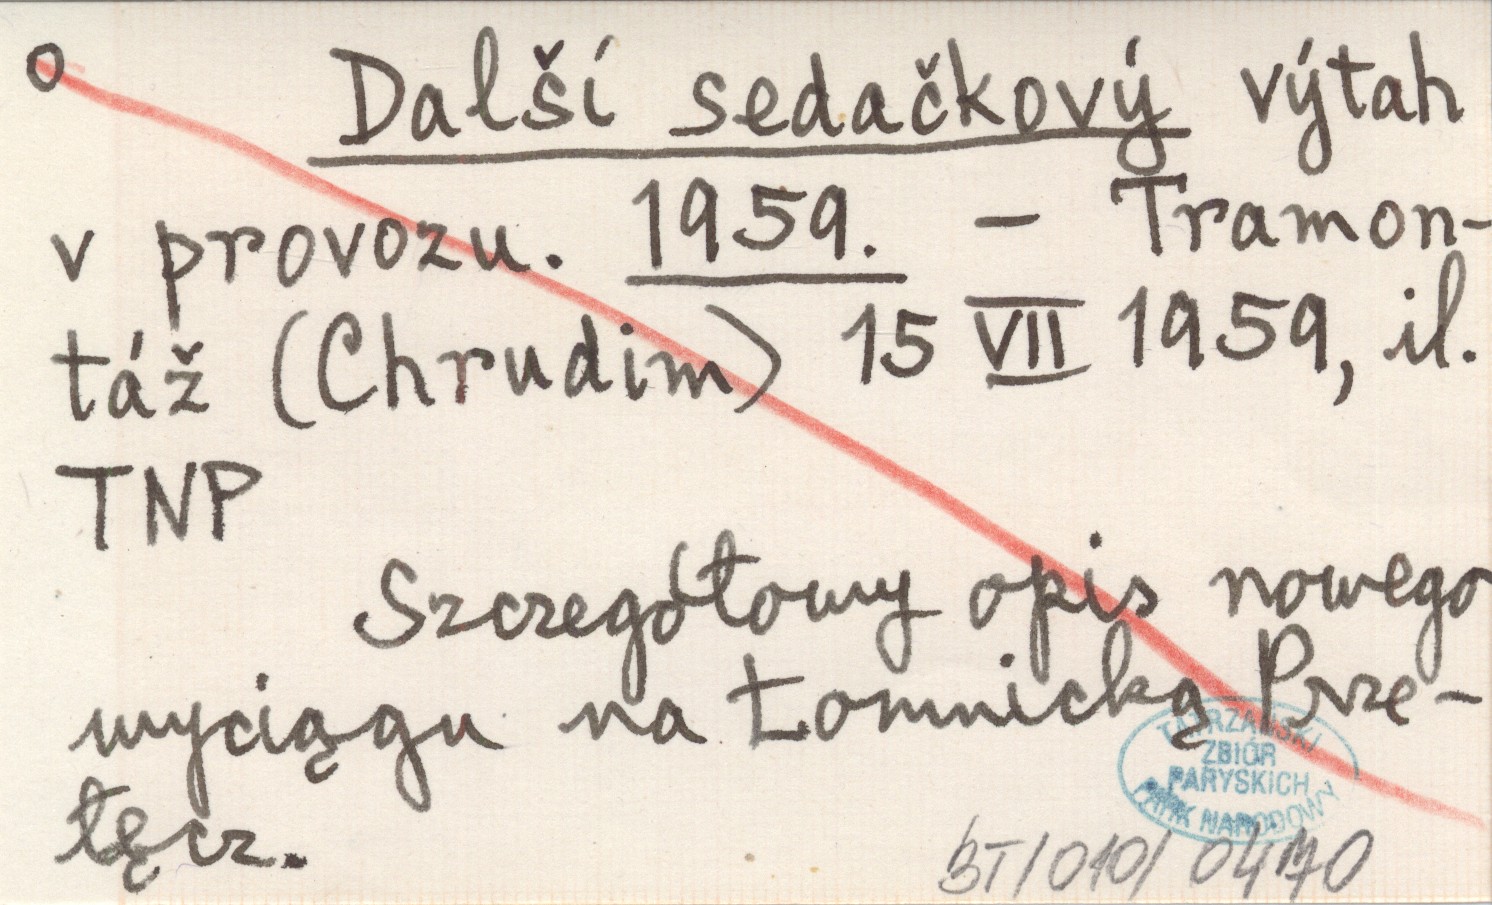 o Další sedačkový výtah
v provozu. 1959. – Tramon-
táž (Chrudim) 15 VII 1959, il.
TNP
Szczegółowy opis nowego
wyciągu na Łomnicką Prze-
łęcz.
TATRZAŃSKI
ZBIÓR
PARYSKICH
PARK NARODOWY
BT/010/